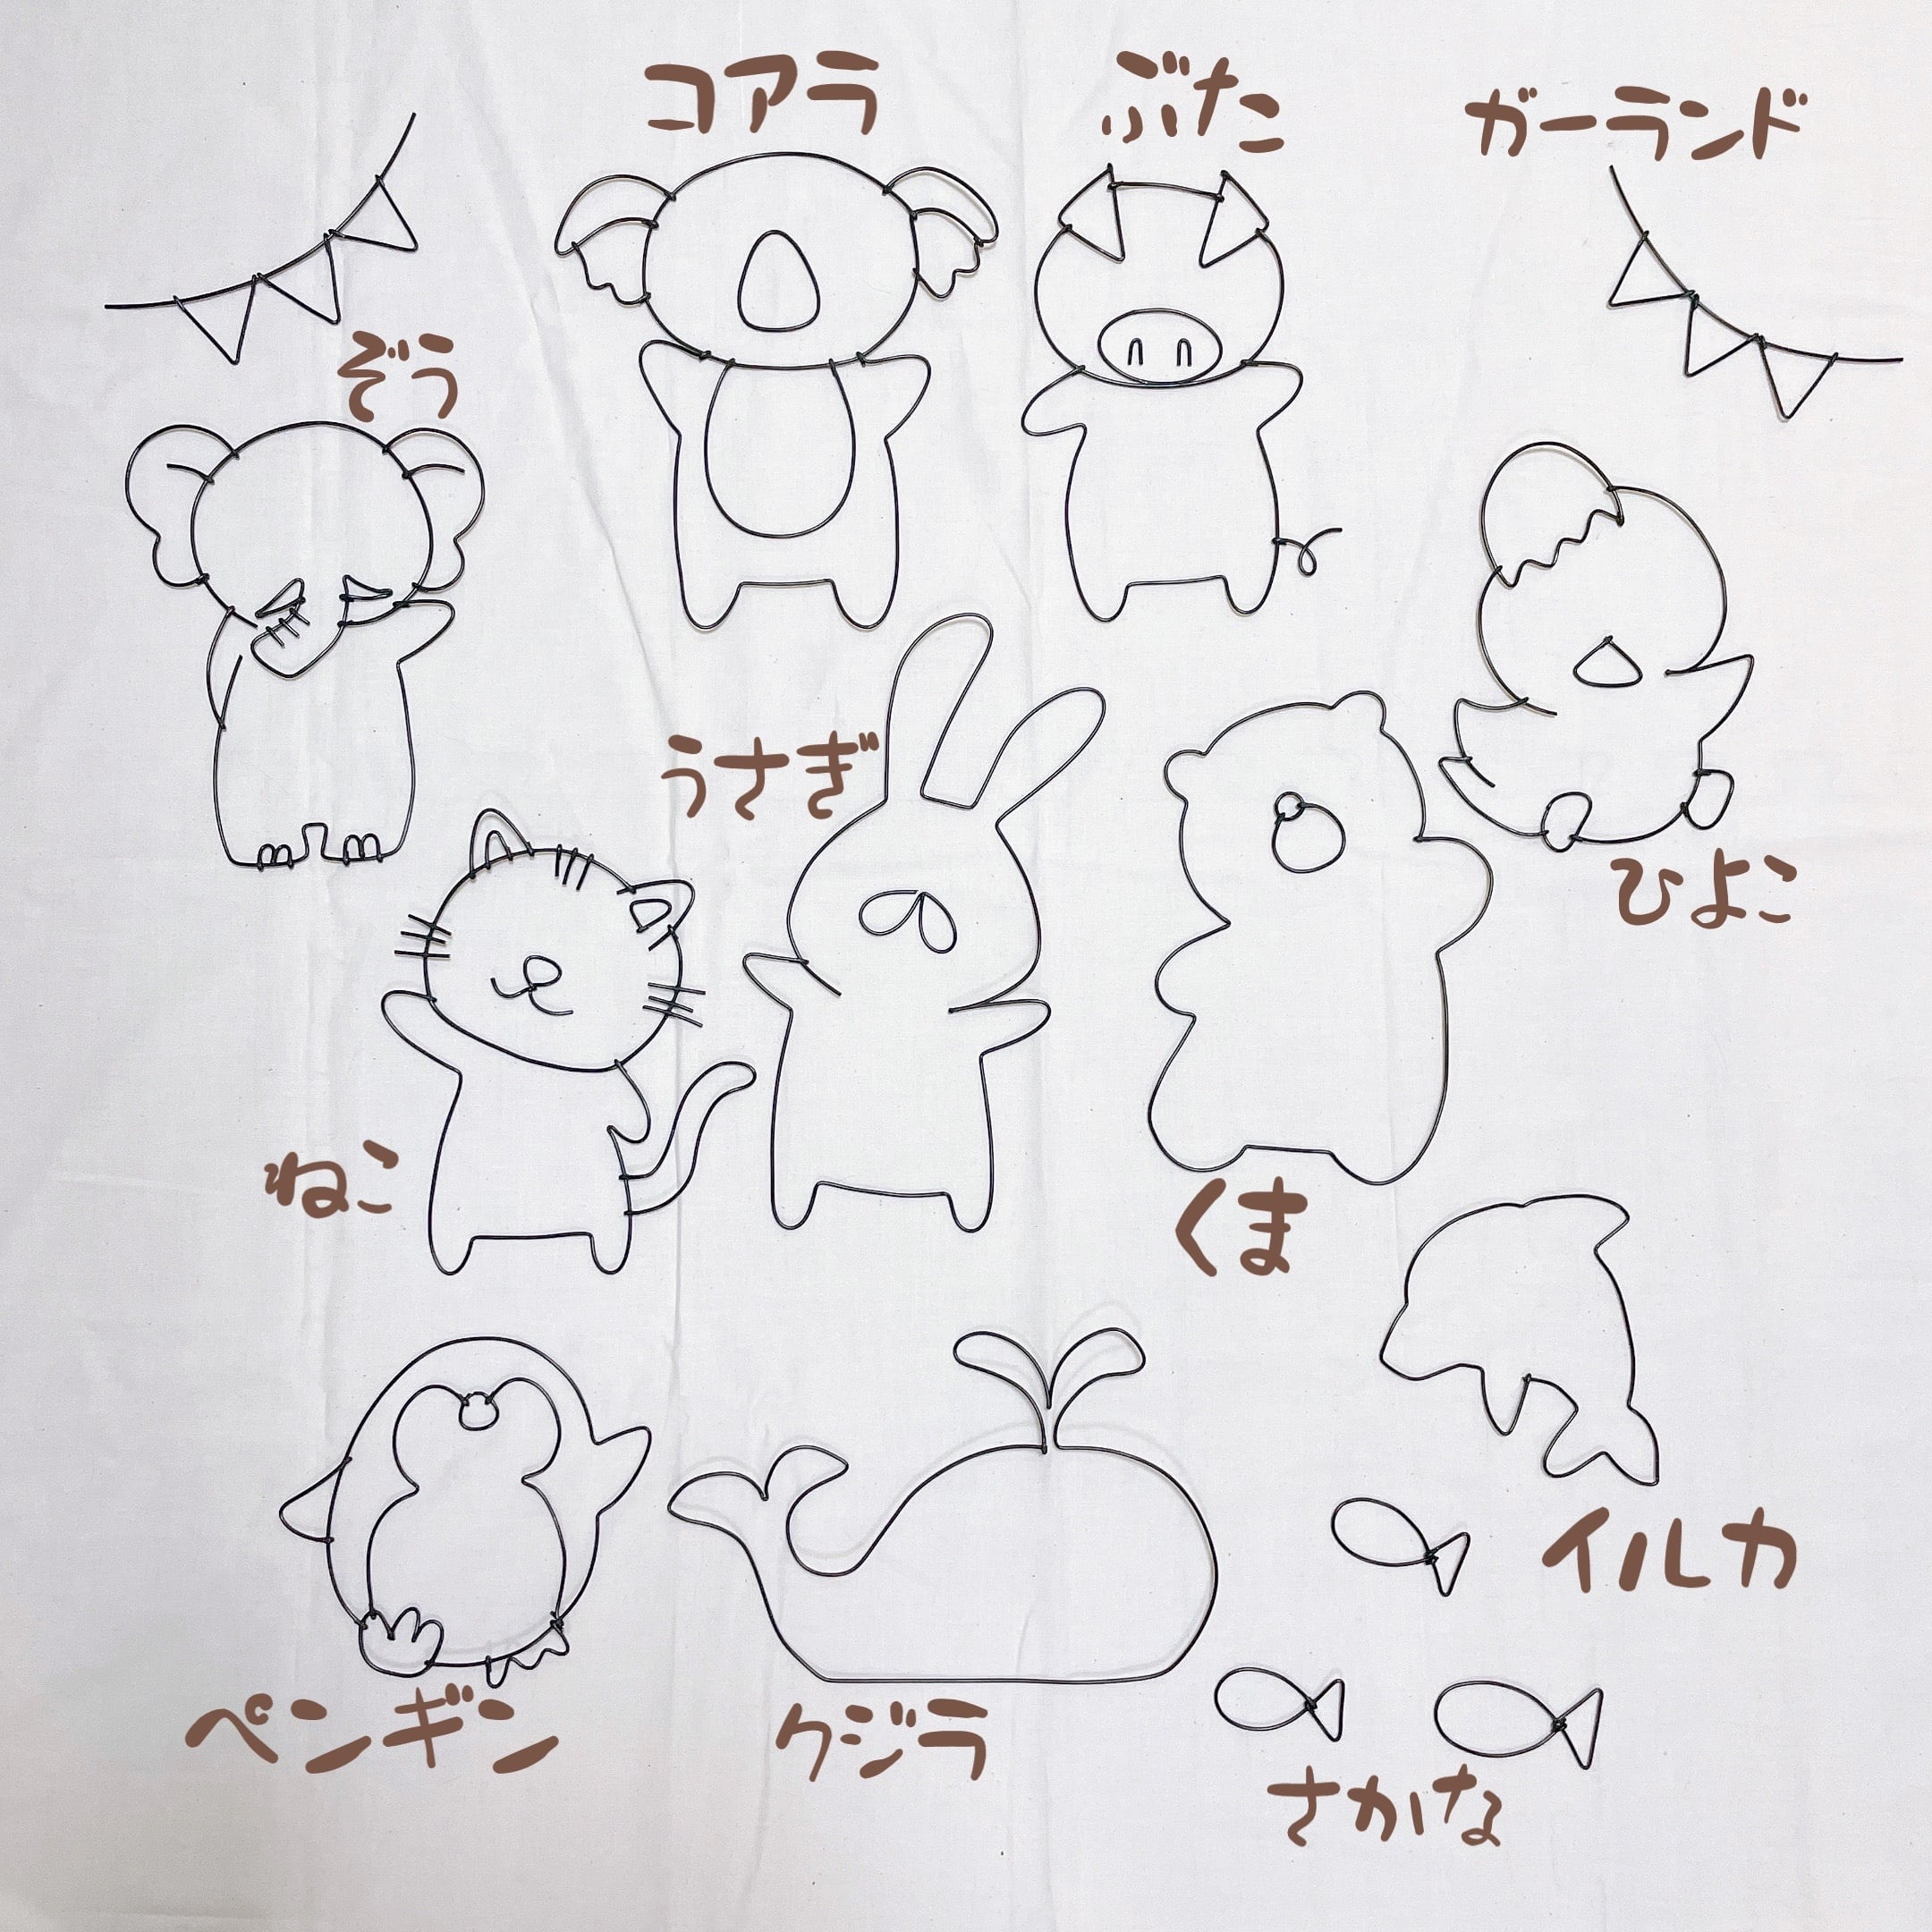 コアラ
ぶた
ガーランド
ぞう
うさぎ
ひよこ
ねこ
くま
イルカ
ペンギン
クジラ
さかな